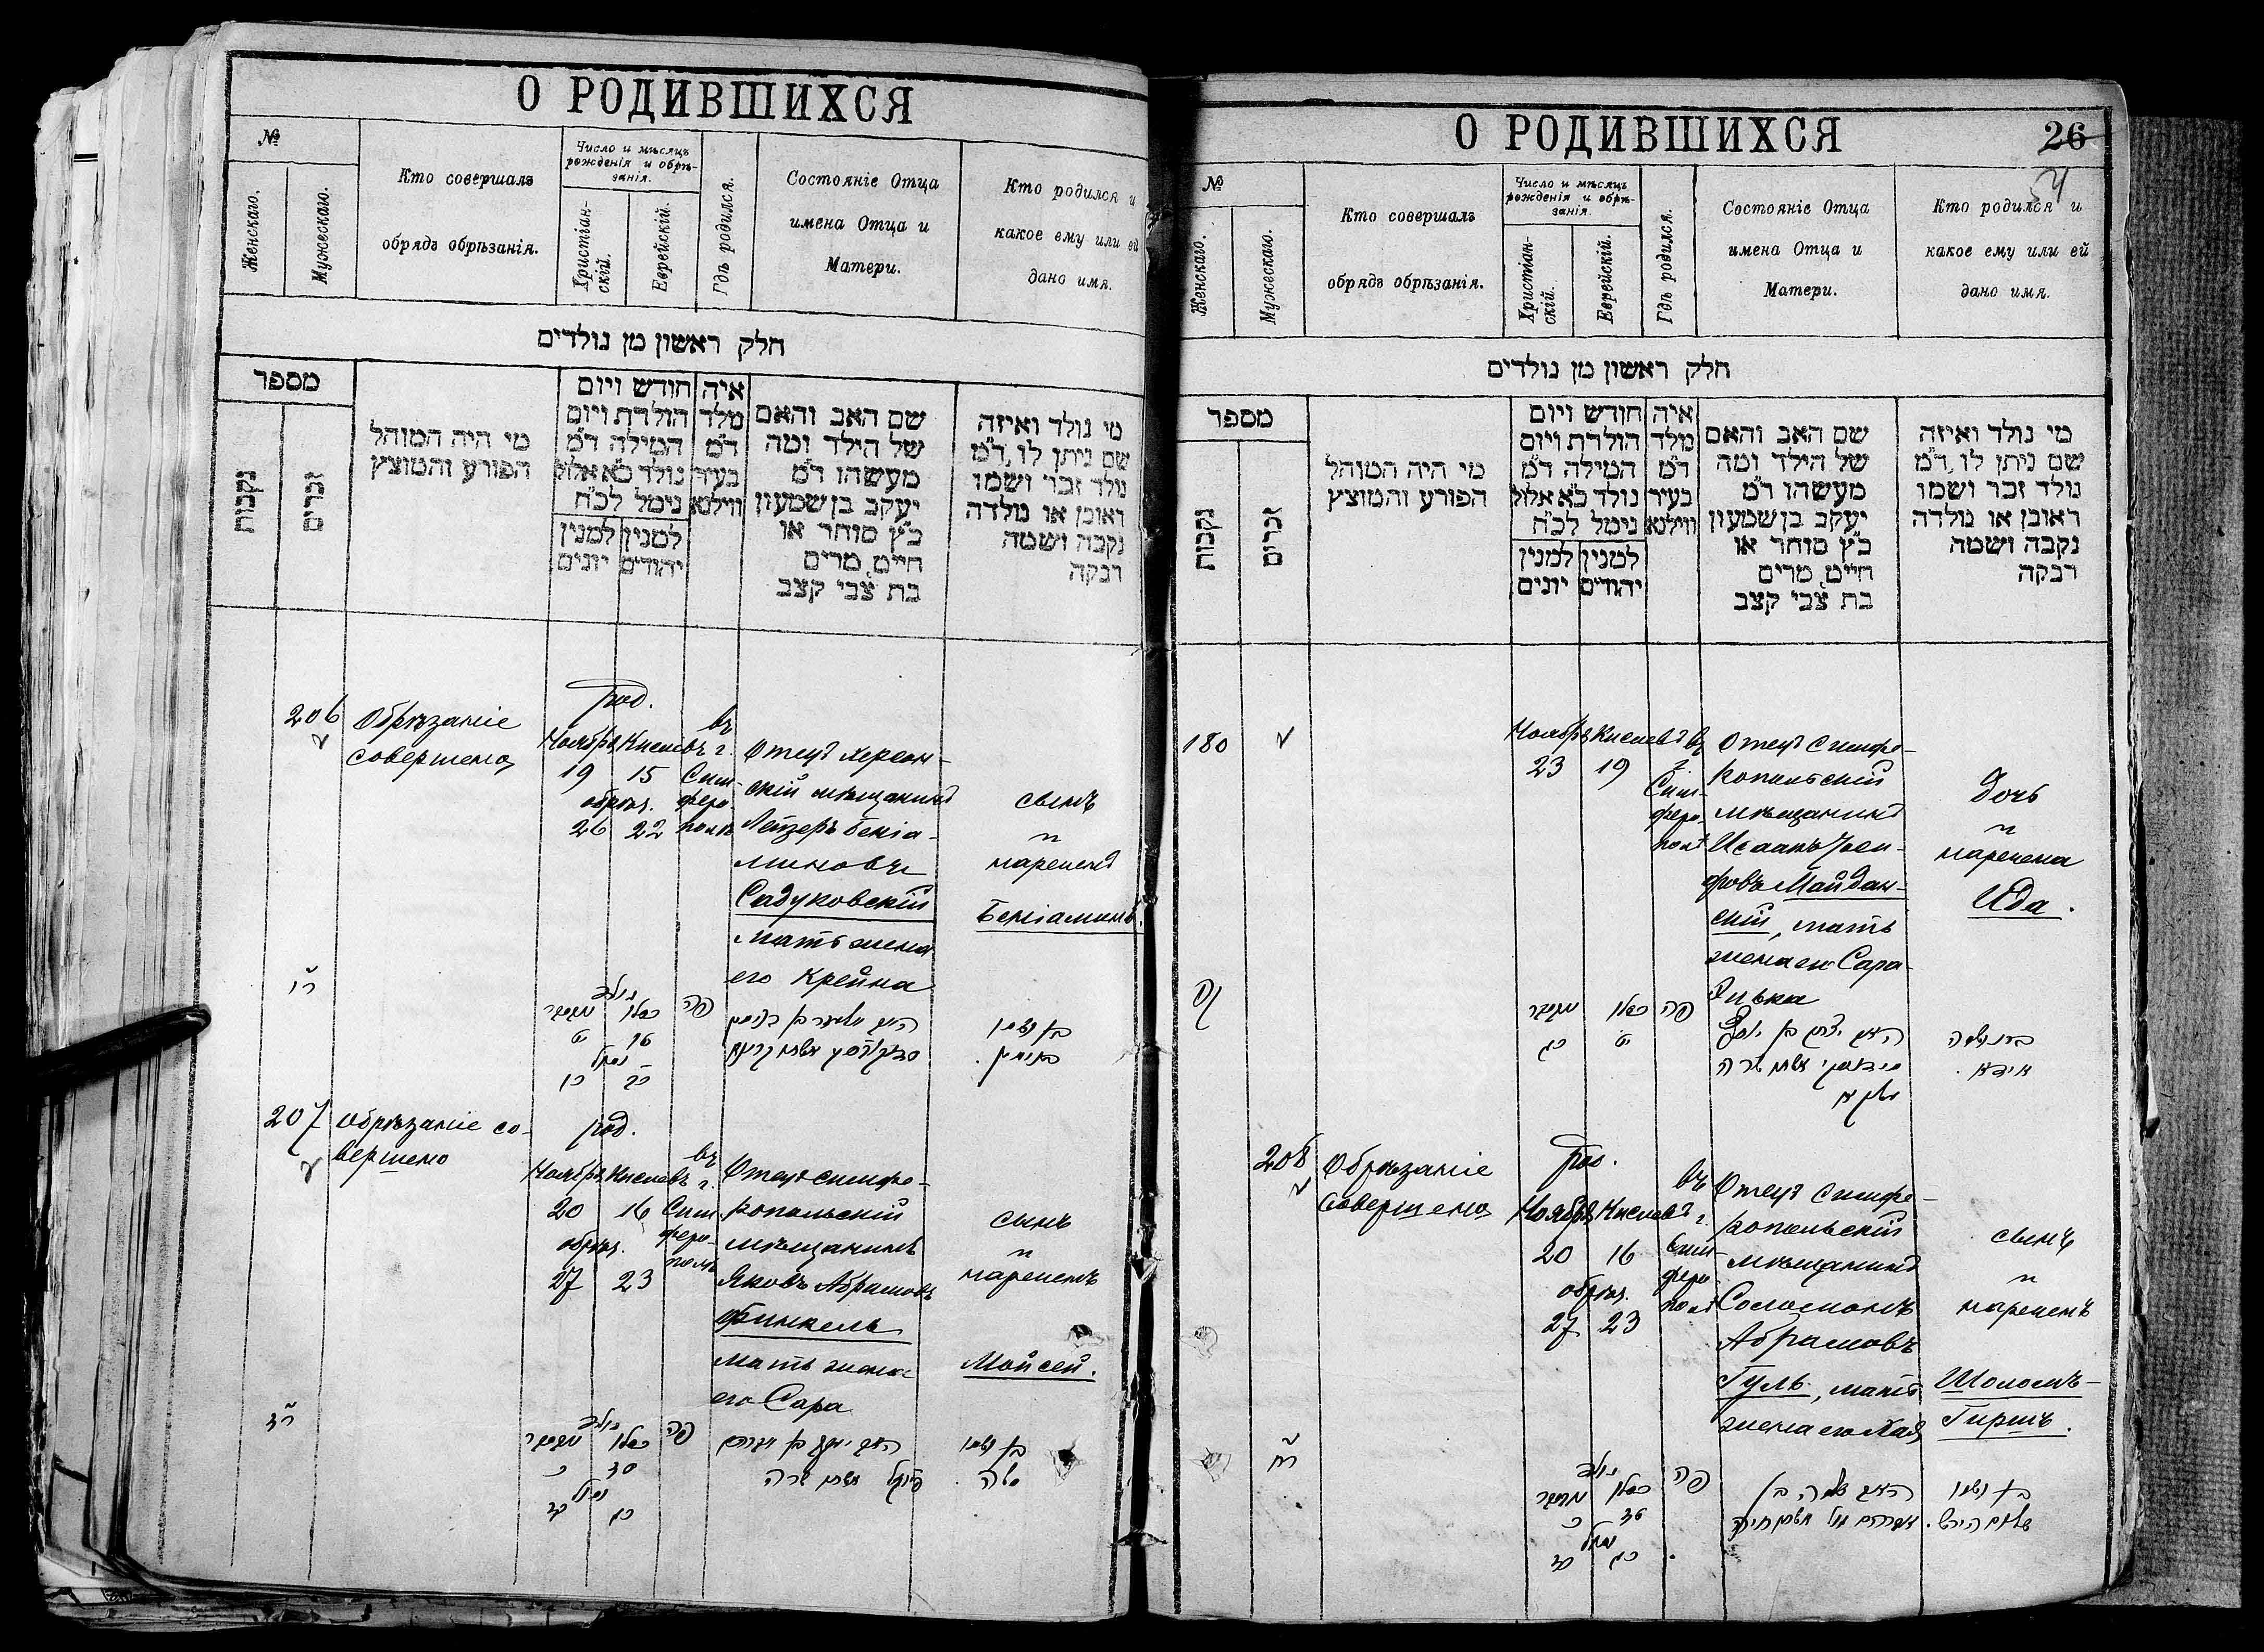 О РОДИВШИХСЯ
№
Женскаго.
Мужескаго.
Кто совершалъ
обрядъ обрѣзанія.
Число и мѣсяцъ
рожденія и обрѣ-
занія.
Христіан-
скій.
Еврейскій.
Гдѣ родился.
Состояніе Отца
имена Отца и
Матери.
Кто родился и
какое ему или ей
дано имя.
חלק ראשון מן נולדים
מספר
נקבות
זכרים
מי היה המוהל
הפורע והמוצץ
חודש ויום
הולדת ויום
המילה ד״מ
נולד כ״א אלול
נימל לכ״ח
למנין למנין
יהודים יונים
איה
מלד
ד״מ
בעיר
ווילנא
שם האב והאם
של הילד ומה
מעשהו ד״מ
יעקב בן שמעון
כ״ץ סוחר או
חייט, מרים
בת צבי קצב
מי נולד ואיזה
שם ניתן לו, ד״מ
נולד זכר ושמו
ראובן או נולדה
נקבה ושמה
רבקה
206
Обрѣзаніе
совершено
род.
Ноябрь Кислевъ
19 15
обрѣз.
26 22
въ
г.
Сим-
феро-
полѣ
Отецъ херсон-
скій мѣщанинъ
Лейзеръ Беніа-
миновъ
Садуковскій
мать жена
его Крейна
сынъ
и
нареченъ
Беніаминъ.
נולד
כסלו
פה
נימול
בן ושמו
בנימין.
207
Обрѣзаніе со-
вершено
род.
Ноябрь Кислевъ
20 16
обрѣз.
27 23
въ
г.
Сим-
феро-
полѣ
Отецъ симфе-
ропольскій
мѣщанинъ
Яковъ Абрамовъ
Финкель
мать жена
его Сара
сынъ
и
нареченъ
Мойсей.
נולד
כסלו
פה
נימול
פינקל אשתו שרה
בן ושמו
משה.
О РОДИВШИХСЯ
26
54
№
Женскаго.
Мужескаго.
Кто совершалъ
обрядъ обрѣзанія.
Число и мѣсяцъ
рожденія и обрѣ-
занія.
Христіан-
скій.
Еврейскій.
Гдѣ родился.
Состояніе Отца
имена Отца и
Матери.
Кто родился и
какое ему или ей
дано имя.
חלק ראשון מן נולדים
מספר
נקבות
זכרים
מי היה המוהל
הפורע והמוצץ
חודש ויום
הולדת ויום
המילה ד״מ
נולד כ״א אלול
נימל לכ״ח
למנין למנין
יהודים יונים
איה
מלד
ד״מ
בעיר
ווילנא
שם האב והאם
של הילד ומה
מעשהו ד״מ
יעקב בן שמעון
כ״ץ סוחר או
חייט, מרים
בת צבי קצב
מי נולד ואיזה
שם ניתן לו, ד״מ
נולד זכר ושמו
ראובן או נולדה
נקבה ושמה
רבקה
180
Ноябрь Кислевъ
23 19
въ
г.
Сим-
феро-
полѣ
Отецъ Симфе-
ропольскій
мѣщанинъ
Исаакъ Іоси-
фовъ Майдан-
скій, мать
жена его Сара-
Ривка
Дочь
и
наречена
Ида.
כסלו
פה
יצחק בן יוסף
אידא.
208
Обрѣзаніе
совершено
род.
Ноябрь Кислевъ
20 16
обрѣз.
27 23
въ
г.
Сим-
феро-
полѣ
Отецъ Симфе-
ропольскій
мѣщанинъ
Соломонъ
Абрамовъ
Гуль, мать
жена его Хая
сынъ
и
нареченъ
Шоломъ-
Гиршъ.
נולד
כסלו
פה
נימול
שלמה בן
אברהם גול אשתו חיה
בן ושמו
שלום הירש.